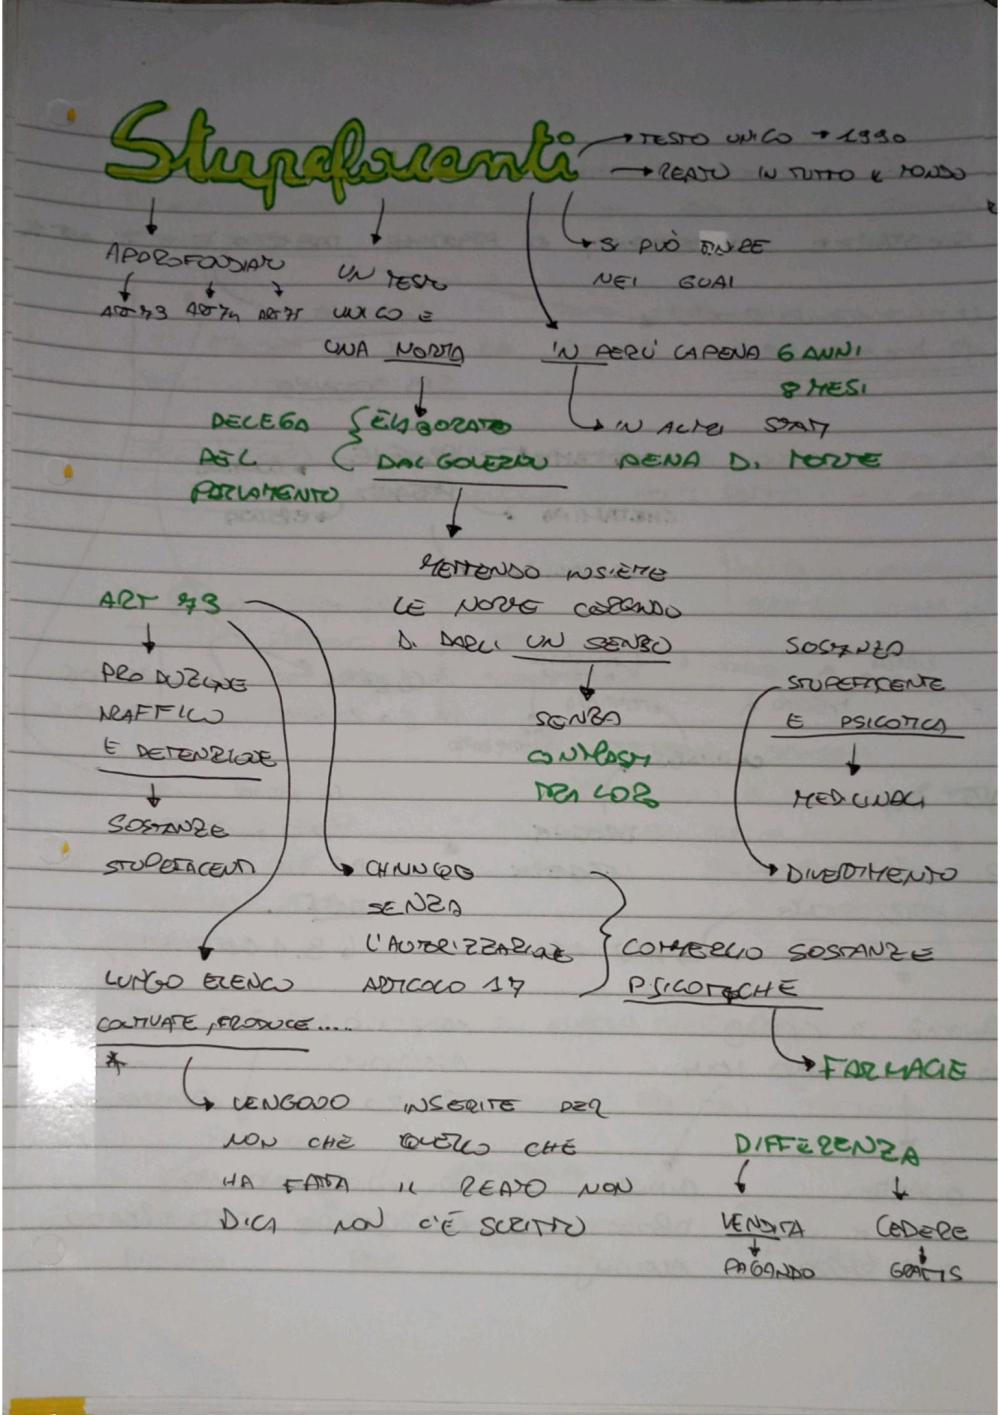 Stupefacenti
→ TESTO UNICO → 1990
→ REATO IN TUTTO IL MONDO
SI PUÒ FINIRE
NEI GUAI
APPROFONDIAMO
ART 73 ART 74 ART 75
UN TESTO
UNICO E
UNA NORMA
IN PERÙ LA PENA 6 ANNI
8 MESI
IN ALTRI STATI
PENA DI MORTE
DELEGA
DEL
PARLAMENTO
ELABORATO
DAL GOVERNO
METTENDO INSIEME
LE NORME CERCANDO
DI DARLI UN SENSO
SENZA
CONTRASTI
TRA LORO
ART 73
PRODUZIONE
TRAFFICO
E DETENZIONE
SOSTANZE
STUPEFACENTI
SOSTANZA
STUPEFACENTE
E PSICOTICA
MEDICINALI
DIVERTIMENTO
CHIUNQUE
SENZA
L'AUTORIZZAZIONE
ARTICOLO 17
COMMERCIO SOSTANZE
PSICOTICHE
FARMACIE
LUNGO ELENCO
COLTIVATE, PRODUCE.....
*
VENGONO INSERITE PER
NON CHE QUELLO CHE
HA FATTO IL REATO NON
DICA NON C'È SCRITTO
DIFFERENZA
VENDITA CEDERE
PAGANDO GRATIS